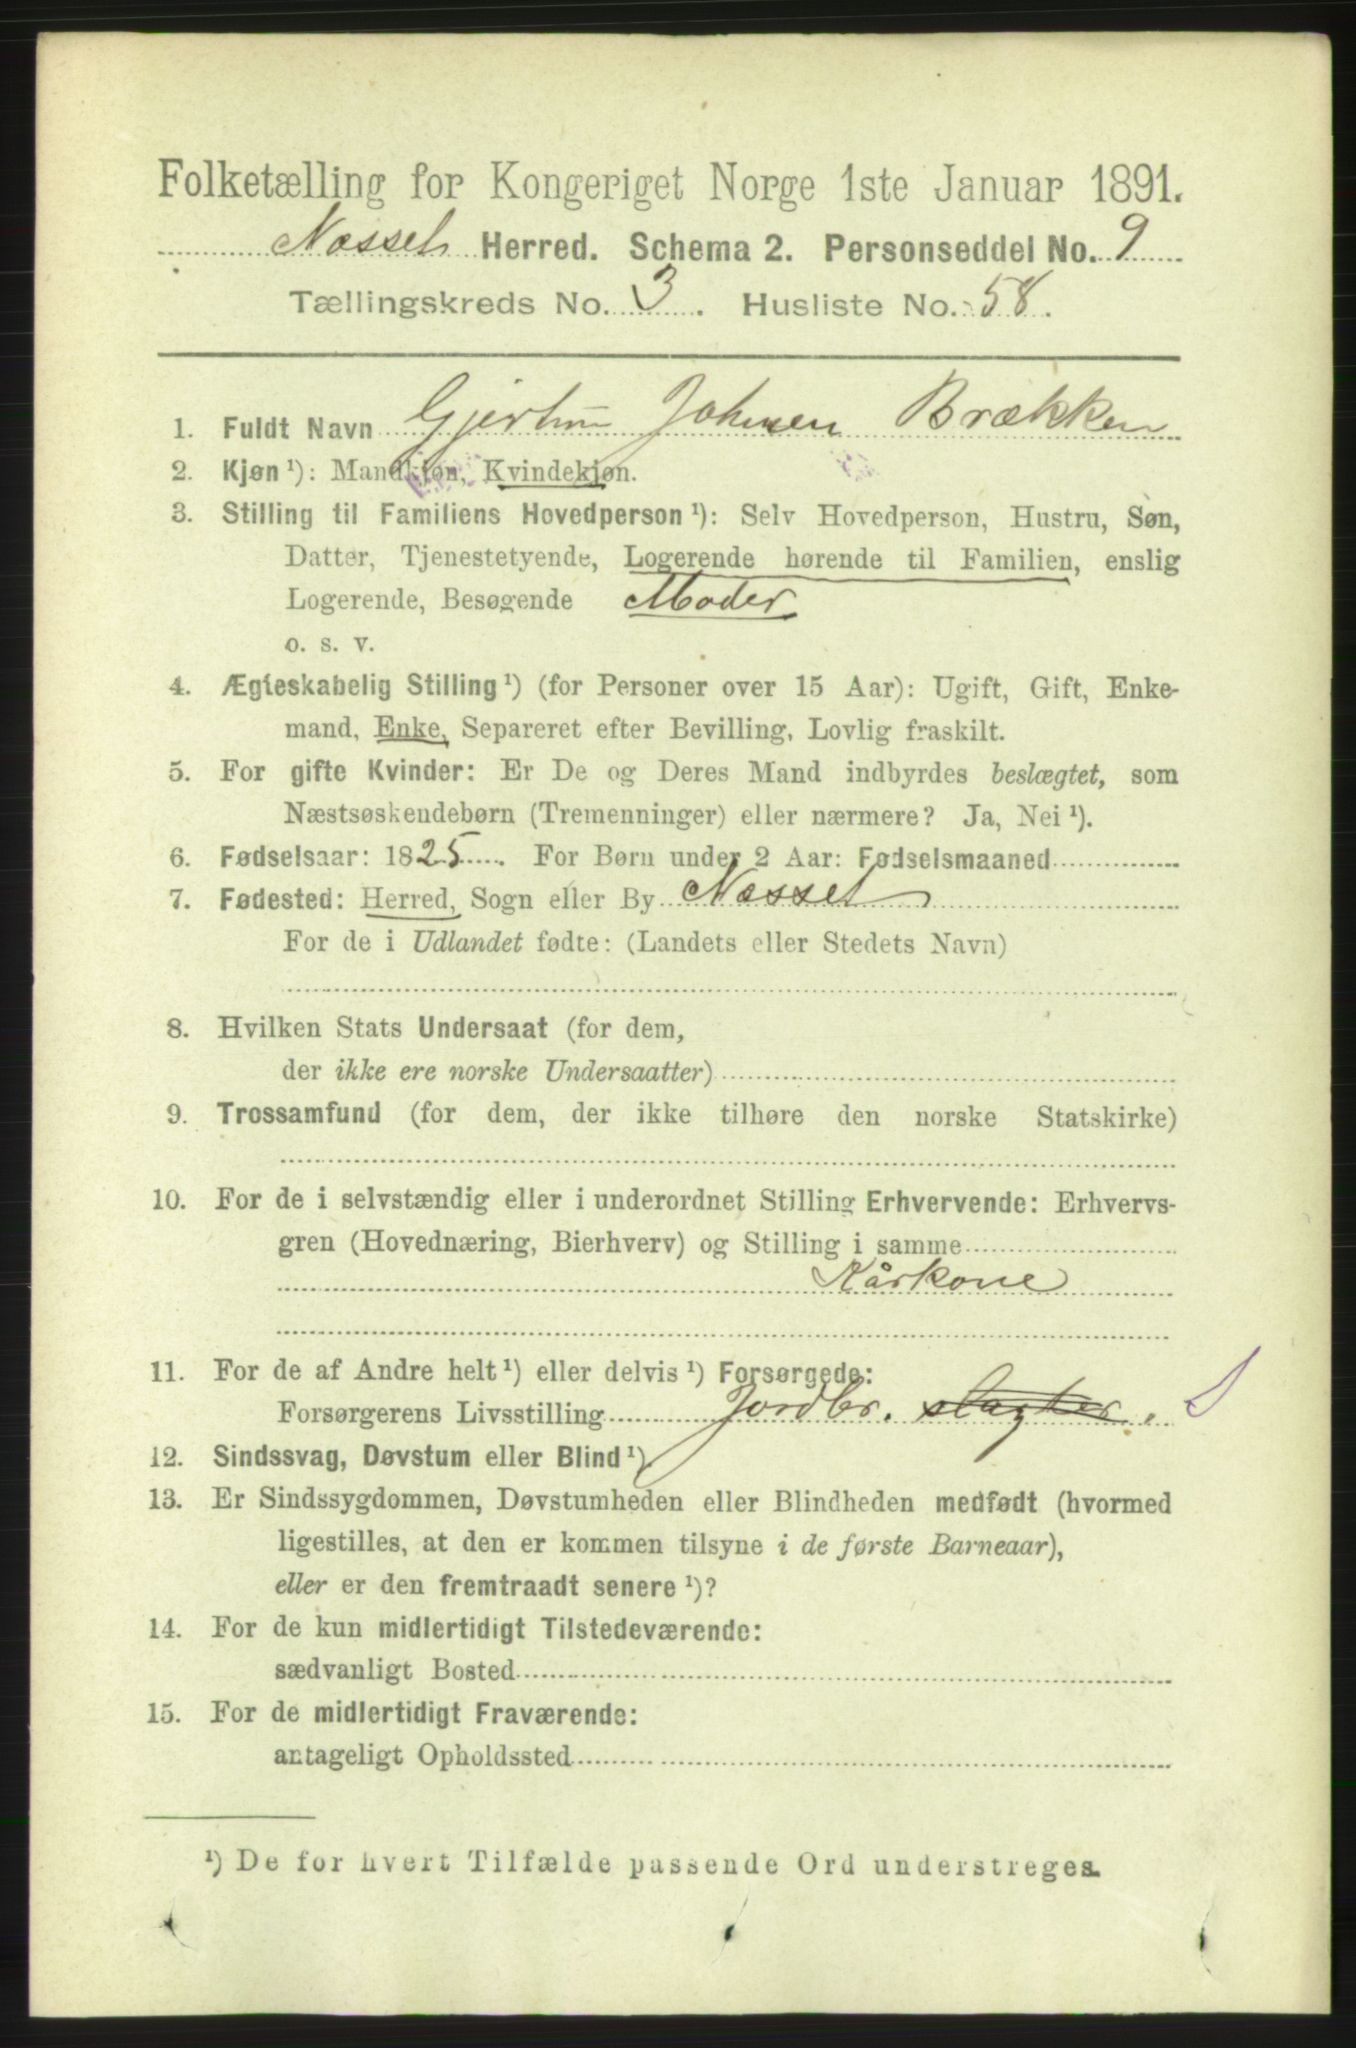 Folketælling for Kongeriget Norge 1ste Januar 1891.
Nesset Herred. Schema 2. Personseddel No. 9
Tællingskreds No. 3. Husliste No. 58.
1. Fuldt Navn Gjertru Johnsen Brækken
2. Kjøn ¹): Mandkjøn, Kvindekjøn.
3. Stilling til Familiens Hovedperson ¹): Selv Hovedperson, Hustru, Søn,
Datter, Tjenestetyende, Logerende hørende til Familien, enslig
Logerende, Besøgende Moder
o. s. v.
4. Ægteskabelig Stilling ¹) (for Personer over 15 Aar): Ugift, Gift, Enke-
mand, Enke, Separeret efter Bevilling, Lovlig fraskilt.
5. For gifte Kvinder: Er De og Deres Mand indbyrdes beslægtet, som
Næstsøskendebørn (Tremenninger) eller nærmere? Ja, Nei ¹).
6. Fødselsaar: 1825. For Børn under 2 Aar: Fødselsmaaned
7. Fødested: Herred, Sogn eller By Nesset
For de i Udlandet fødte: (Landets eller Stedets Navn)
8. Hvilken Stats Undersaat (for dem,
der ikke ere norske Undersaatter)
9. Trossamfund (for dem, der ikke tilhøre den norske Statskirke)
10. For de i selvstændig eller i underordnet Stilling Erhvervende: Erhvervs-
gren (Hovednæring, Bierhverv) og Stilling i samme
Kårkone
11. For de af Andre helt ¹) eller delvis ¹) Forsørgede:
Forsørgerens Livsstilling Jordbr. slagter.
12. Sindssvag, Døvstum eller Blind ¹).
13. Er Sindssygdommen, Døvstumheden eller Blindheden medfødt (hvormed
ligestilles, at den er kommen tilsyne i de første Barneaar),
eller er den fremtraadt senere ¹)?
14. For de kun midlertidigt Tilstedeværende:
sædvanligt Bosted
15. For de midlertidigt Fraværende:
antageligt Opholdssted
¹) De for hvert Tilfælde passende Ord understreges.